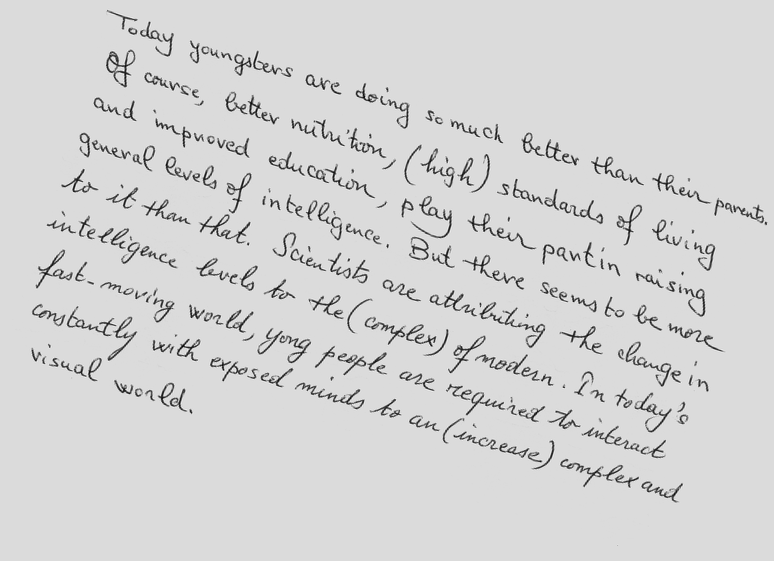 Today youngsters are doing so much better than their parents.
Of course, better nutrition, (high) standards of living
and improved education, play their part in raising
general levels of intelligence. But there seems to be more
to it than that. Scientists are attribiting the change in
intelligence levels to the (complex) of modern. In today's
fast-moving world, yong people are required to interact
constantly with exposed minds to an (increase) complex and
visual world.